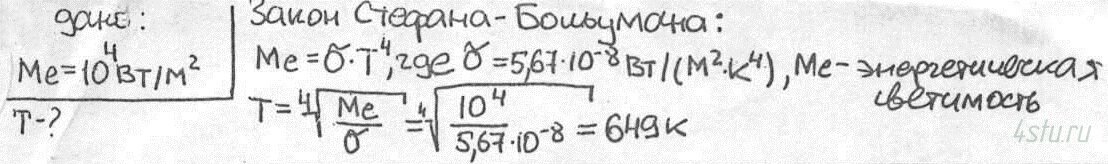 дано:
Me=10⁴Вт/м²
T-?
Закон Стефана-Больцмана:
Me=σ·T⁴, где σ=5,67·10⁻⁸Вт/(м²·К⁴), Me-энергетическая
светимость
T=⁴√(Me/σ)=⁴√(10⁴/5,67·10⁻⁸)=649К
4stu.ru